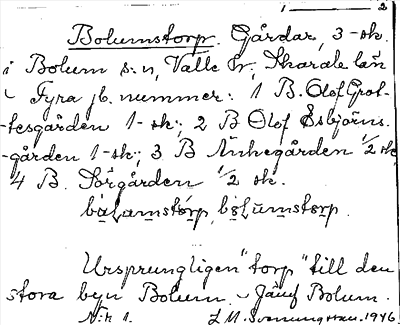 1 — 2
Bolumstorp. Gårdar, 3-sk.
i Bolum s:n, Valle hr, Skarab. län
Fyra jb. nummer: 1 B. Olof Grot-
tesgården 1-sk; 2 B Olof Esbjörns-
gården 1-sk; 3 B Änkegården 1/2 sk,
4 B. Sörgården 1/2 sk.
Ursprungligen "torp" till den
stora byn Bolum. Jämf Bolum.
N:r 1. 1946